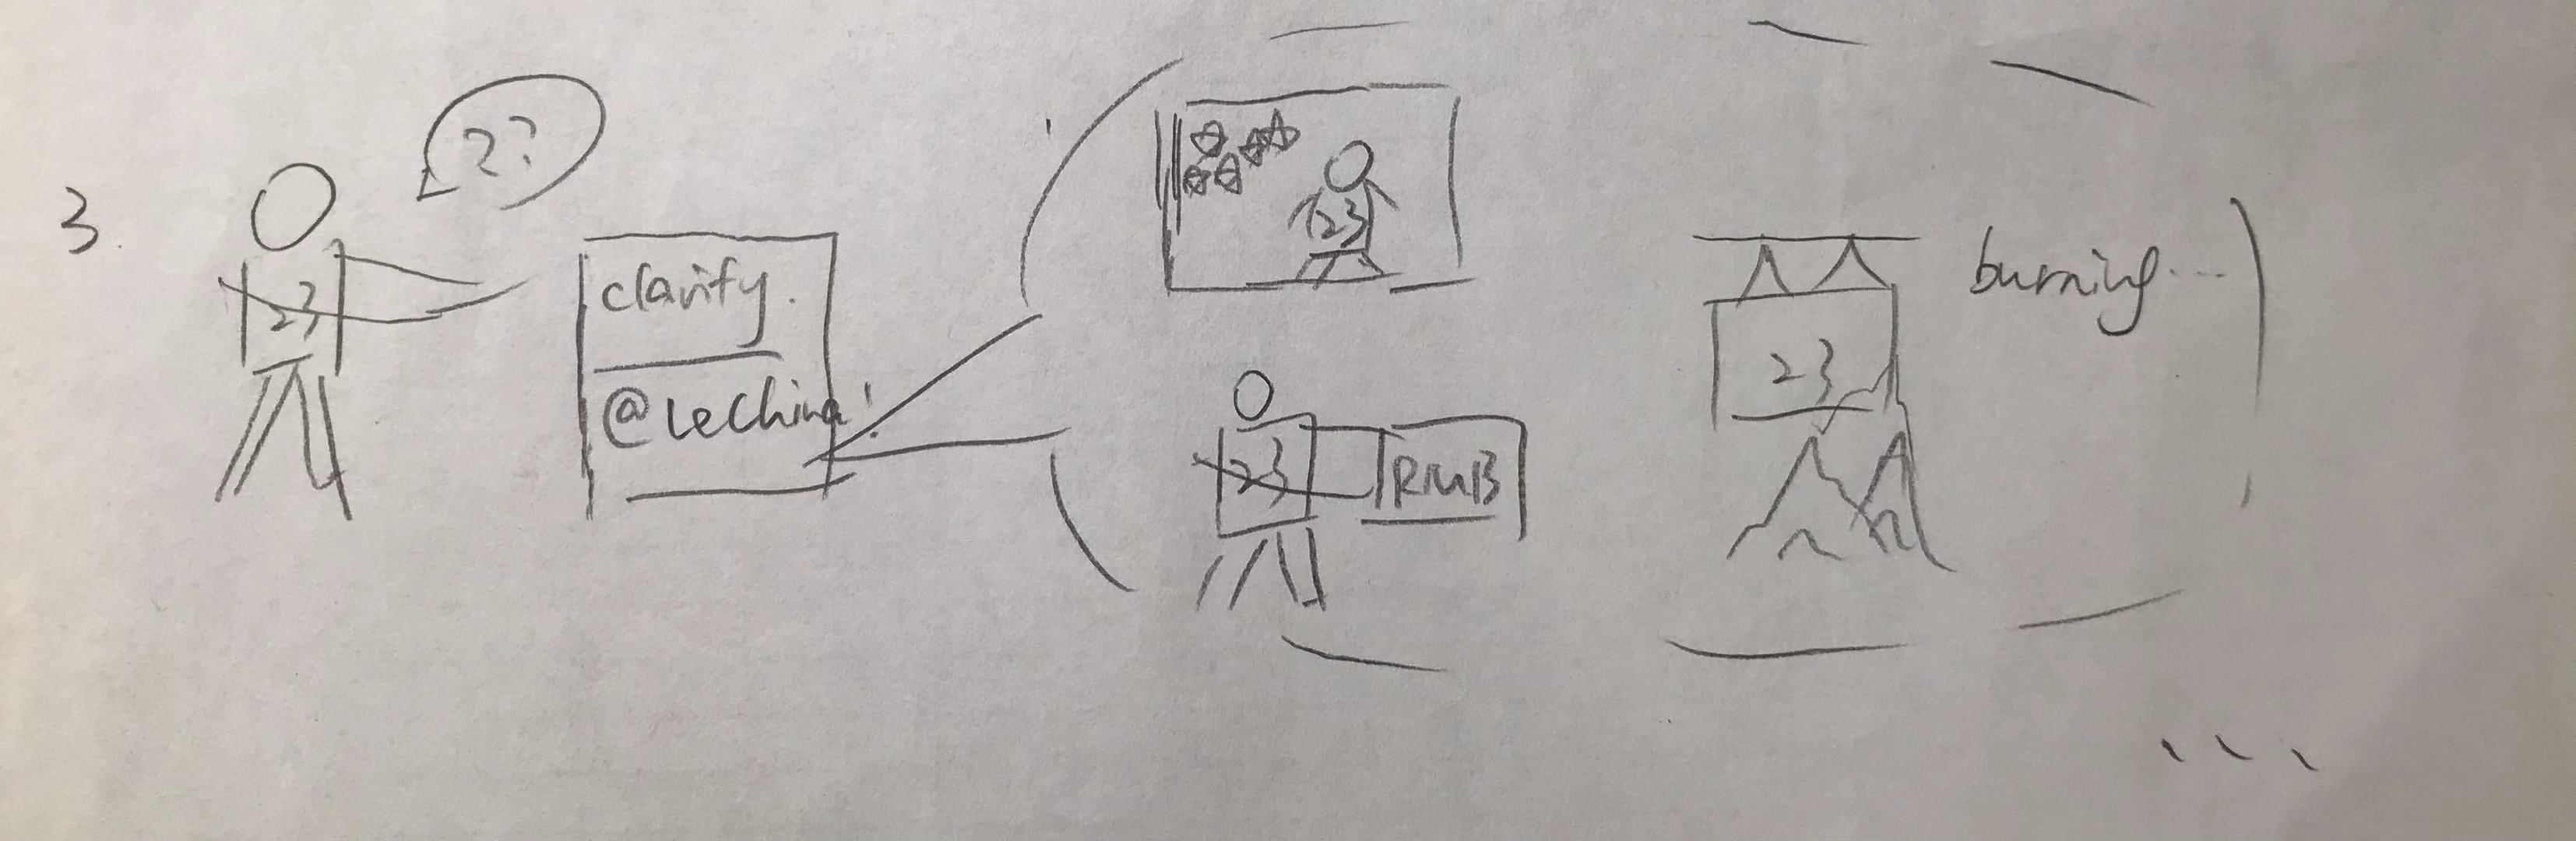 3.
??
23
clarify.
@LeChina!
23
23
RMB
23
burning...
...